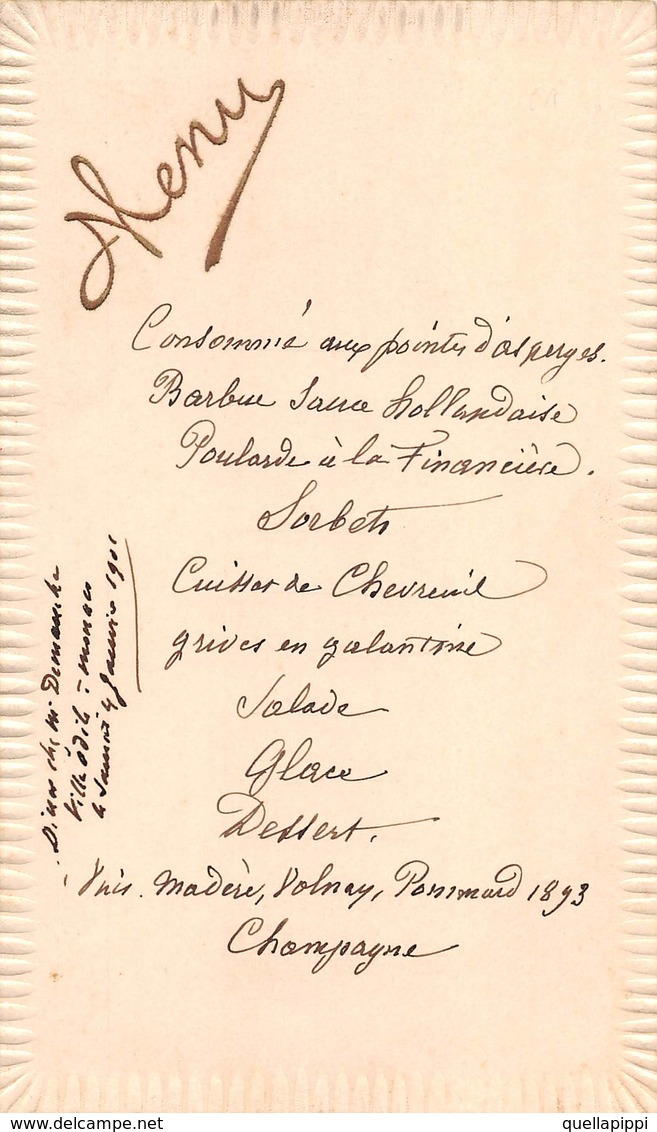 Menu
Consommé aux pointes d'asperges.
Barbue Sauce hollandaise
Poularde à la Financière.
Sorbets
Cuisses de Chevreuil
grives en galantine
Salade
Glace
Dessert.
Vins. Madère, Volnay, Pommard 1893
Champagne
Diner chez Mr Demanche
Villa Odile à Monaco
le Samedi 4 Janvier 1901
delcampe.net
quellapippi